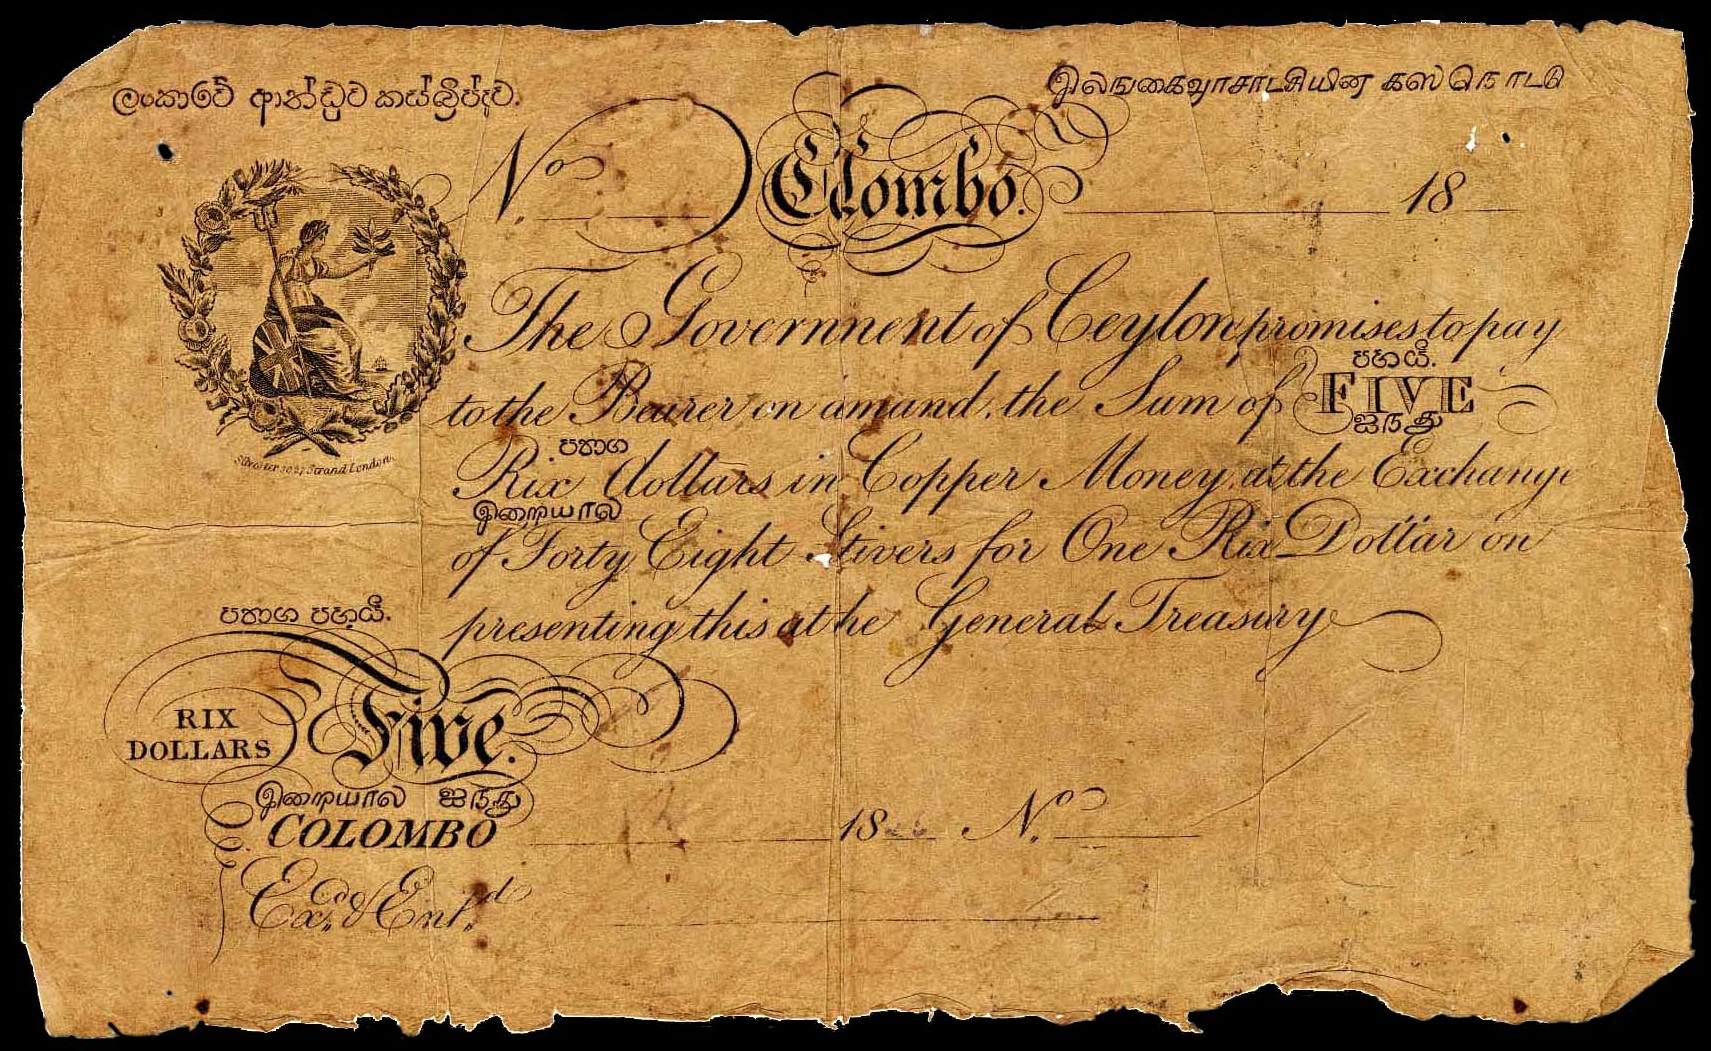 ලංකාවේ ආන්ඩුව කස්
இலங்கைஆசாட்சியின கஸ நொடடு
No.
Colombo.
18
The Government of Ceylon promises to pay
පහයී.
to the Bearer on amand, the Sum of FIVE
ஐநது
පතාග
Rix dollars in Copper Money, at the Exchange
இறையால
of Forty Eight Stivers for One Rix Dollar on
presenting this at he General Treasury
පතාග පහයී.
RIX
DOLLARS
Five.
இறையால ஐநது
COLOMBO
18
No.
Exd. & Entd.
Strand London.